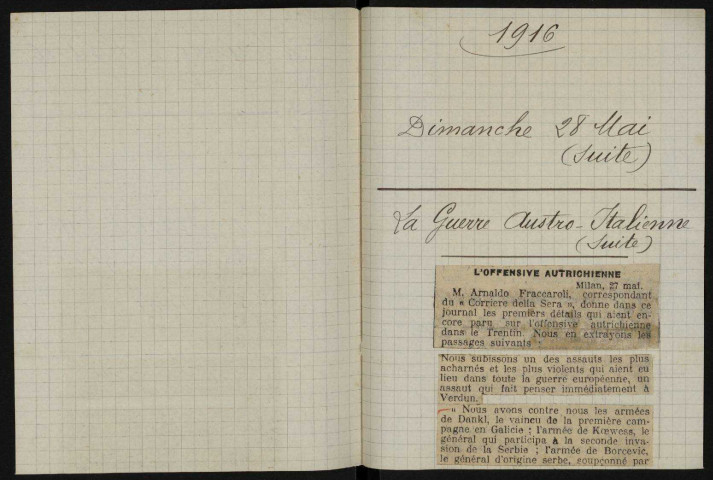 1916
Dimanche 28 Mai
(suite)
La Guerre Austro-Italienne
(suite)
L'OFFENSIVE AUTRICHIENNE
Milan, 27 mai.
M. Arnaldo Fraccaroli, correspondant
du « Corriere della Sera », donne dans ce
journal les premiers détails qui aient en-
core paru sur l'offensive autrichienne
dans le Trentin. Nous en extrayons les
passages suivants :
Nous subissons un des assauts les plus
acharnés et les plus violents qui aient eu
lieu dans toute la guerre européenne, un
assaut qui fait penser immédiatement à
Verdun.
« Nous avons contre nous les armées
de Dankl, le vaincu de la première cam-
pagne en Galicie ; l'armée de Kœwess, le
général qui participa à la seconde inva-
sion de la Serbie ; l'armée de Borcevic,
le général d'origine serbe, soupçonné par